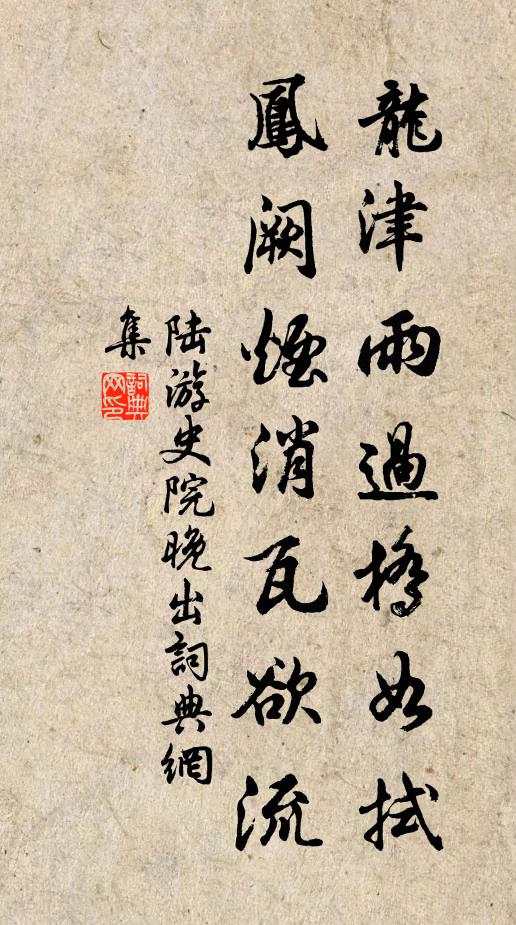 龍津雨過橋如拭
鳳闕煙消瓦欲流
陸游史院晚出詞典網
集
詞典
网印